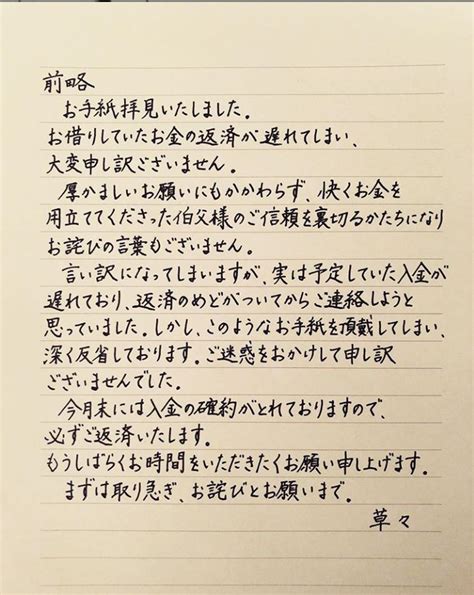 前略
お手紙拝見いたしました。
お借りしていたお金の返済が遅れてしまい、
大変申し訳ございません。
厚かましいお願いにもかかわらず、快くお金を
用立ててくださった伯父様のご信頼を裏切るかたちになり
お詫びの言葉もございません。
言い訳になってしまいますが、実は予定していた入金が
遅れており、返済のめどがついてからご連絡しようと
思っていました。しかし、このようなお手紙を頂戴してしまい、
深く反省しております。ご迷惑をおかけして申し訳
ございませんでした。
今月末には入金の確約がとれておりますので、
必ずご返済いたします。
もうしばらくお時間をいただきたくお願い申し上げます。
まずは取り急ぎ、お詫びとお願いまで。
草々